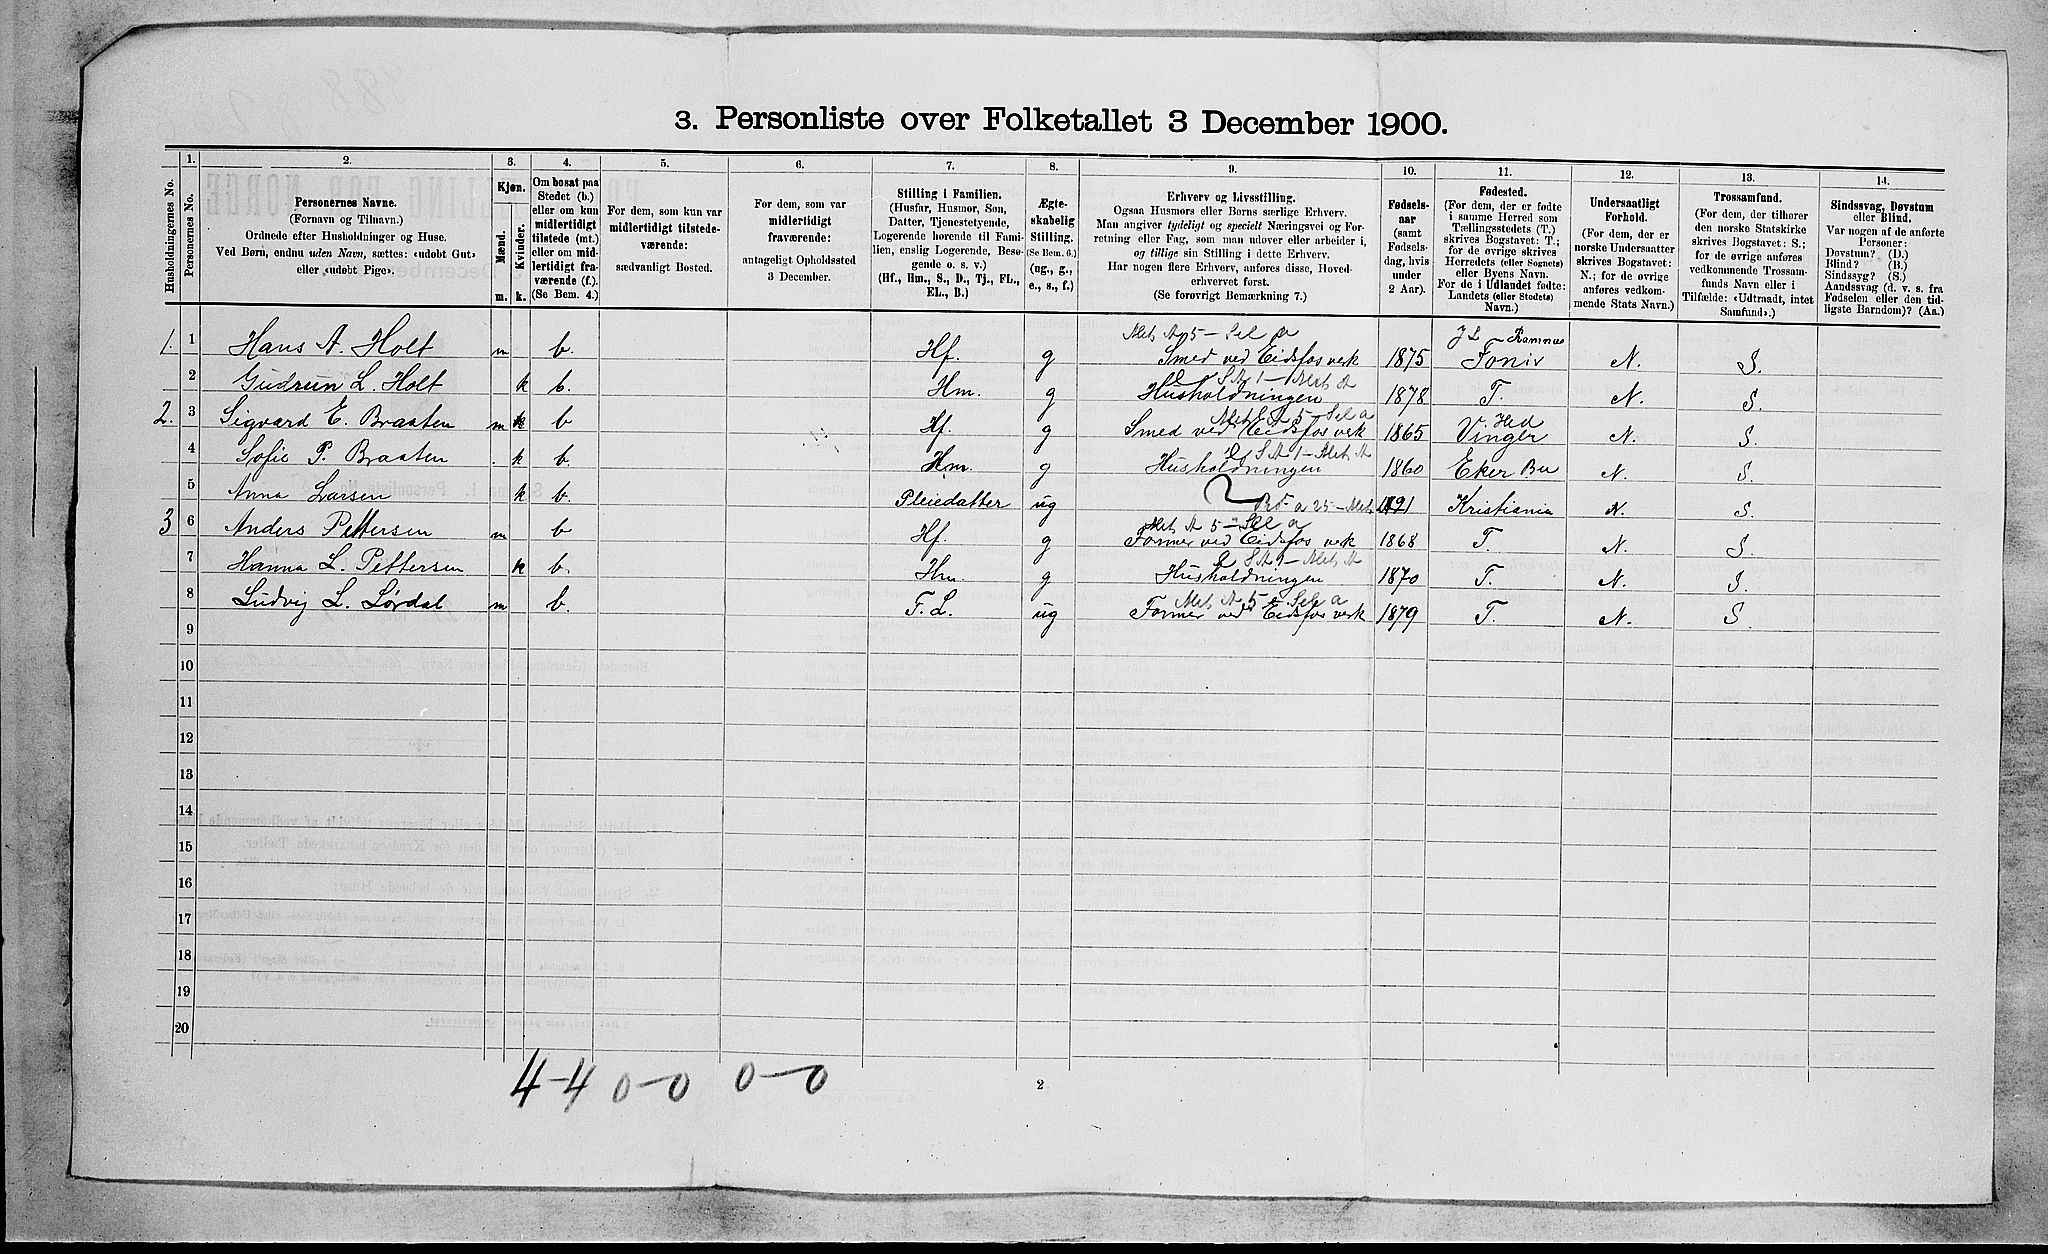 3. Personliste over Folketallet 3 December 1900.
Husholdningernes No.
1.
Personernes No.
2.
Personernes Navne.
(Fornavn og Tilnavn.)
Ordnede efter Husholdninger og Huse.
Ved Børn, endnu uden Navn, sættes: «udøbt Gut»
eller «udøbt Pige».
3.
Kjøn.
Mænd.
Kvinder.
m. k.
4.
Om bosat paa
Stedet (b.)
eller om kun
midlertidigt
tilstede (mt.)
eller om mid-
lertidigt fra-
værende (f.).
(Se Bem. 4.)
5.
For dem, som kun var
midlertidigt tilstede-
værende:
sædvanligt Bosted.
6.
For dem, som var
midlertidigt
fraværende:
antageligt Opholdssted
3 December.
7.
Stilling i Familien.
(Husfar, Husmor, Søn,
Datter, Tjenestetyende,
Logerende hørende til Fami-
lien, enslig Logerende, Besø-
gende o. s. v.)
(Hf., Hm., S., D., Tj., FL.,
EL., B.)
8.
Ægte-
skabelig
Stilling.
(Se Bem. 6.)
(ug., g.,
e., s., f.)
9.
Erhverv og Livsstilling.
Ogsaa Husmors eller Børns særlige Erhverv.
Man angiver tydeligt og specielt Næringsvei og For-
retning eller Fag, som man udøver eller arbeider i,
og tillige sin Stilling i dette Erhverv.
Har nogen flere Erhverv, anføres disse, Hoved-
erhvervet først.
(Se forøvrigt Bemærkning 7.)
10.
Fødsels-
aar
(samt
Fødsels-
dag, hvis
under
2 Aar).
11.
Fødested.
(For dem, der er fødte
i samme Herred som
Tællingsstedets (T.)
skrives Bogstavet: T.;
for de øvrige skrives
Herredets (eller Sognets)
eller Byens Navn.
For de i Udlandet fødte:
Landets (eller Stedets)
Navn.)
12.
Undersaatligt
Forhold.
(For dem, der er
norske Undersaatter
skrives Bogstavet:
N.; for de øvrige
anføres vedkom-
mende Stats Navn.)
13.
Trossamfund.
(For dem, der tilhører
den norske Statskirke
skrives Bogstavet: S.;
for de øvrige anføres
vedkommende Trossam-
funds Navn eller i
Tilfælde: «Udtraadt, intet
Samfund».)
14.
Sindssvag, Døvstum
eller Blind.
Var nogen af de anførte
Personer:
Døvstum? (D.)
Blind? (B.)
Sindssyg? (S.)
Aandssvag (d. v. s. fra
Fødselen eller den tid-
ligste Barndom)? (Aa.)
Met A 5 – Sel a
JL – Ramnes
1. 1 Hans A. Holt m b. Hf. g Smed ved Eidsfos verk 1875 N. S.
S A 1 – Met A
2 Gudrun L. Holt k b. Hm. g Husholdningen 1878 T. N. S.
Hed
2. 3 Sigvard E. Braaten m b Hf. g Smed ved Eidsfos verk 1865 Vinger N. S.
S A 1 – Met A
4 Sofie P. Braaten k b. Hm. g Husholdningen 1860 Eker Bu N. S.
5 Anna Larsen k b. Pleiedatter ug Kristiania N. S.
Met A 5 – Sel a
3 6 Anders Pettersen m b Hf. g Former ved Eidsfos verk 1868 T. N. S.
S A 1 – Met A
7 Hanna L. Pettersen k b. Hm. g Husholdningen 1870 T. N. S.
Met A 5 – Sel a
8 Ludvig L. Lørdal m b. F. L. ug Former ved Eidsfos verk 1879 T. N. S.
9
10
11
12
13
14
15
16
17
18
19
20
4–4 0–0 0–0
2